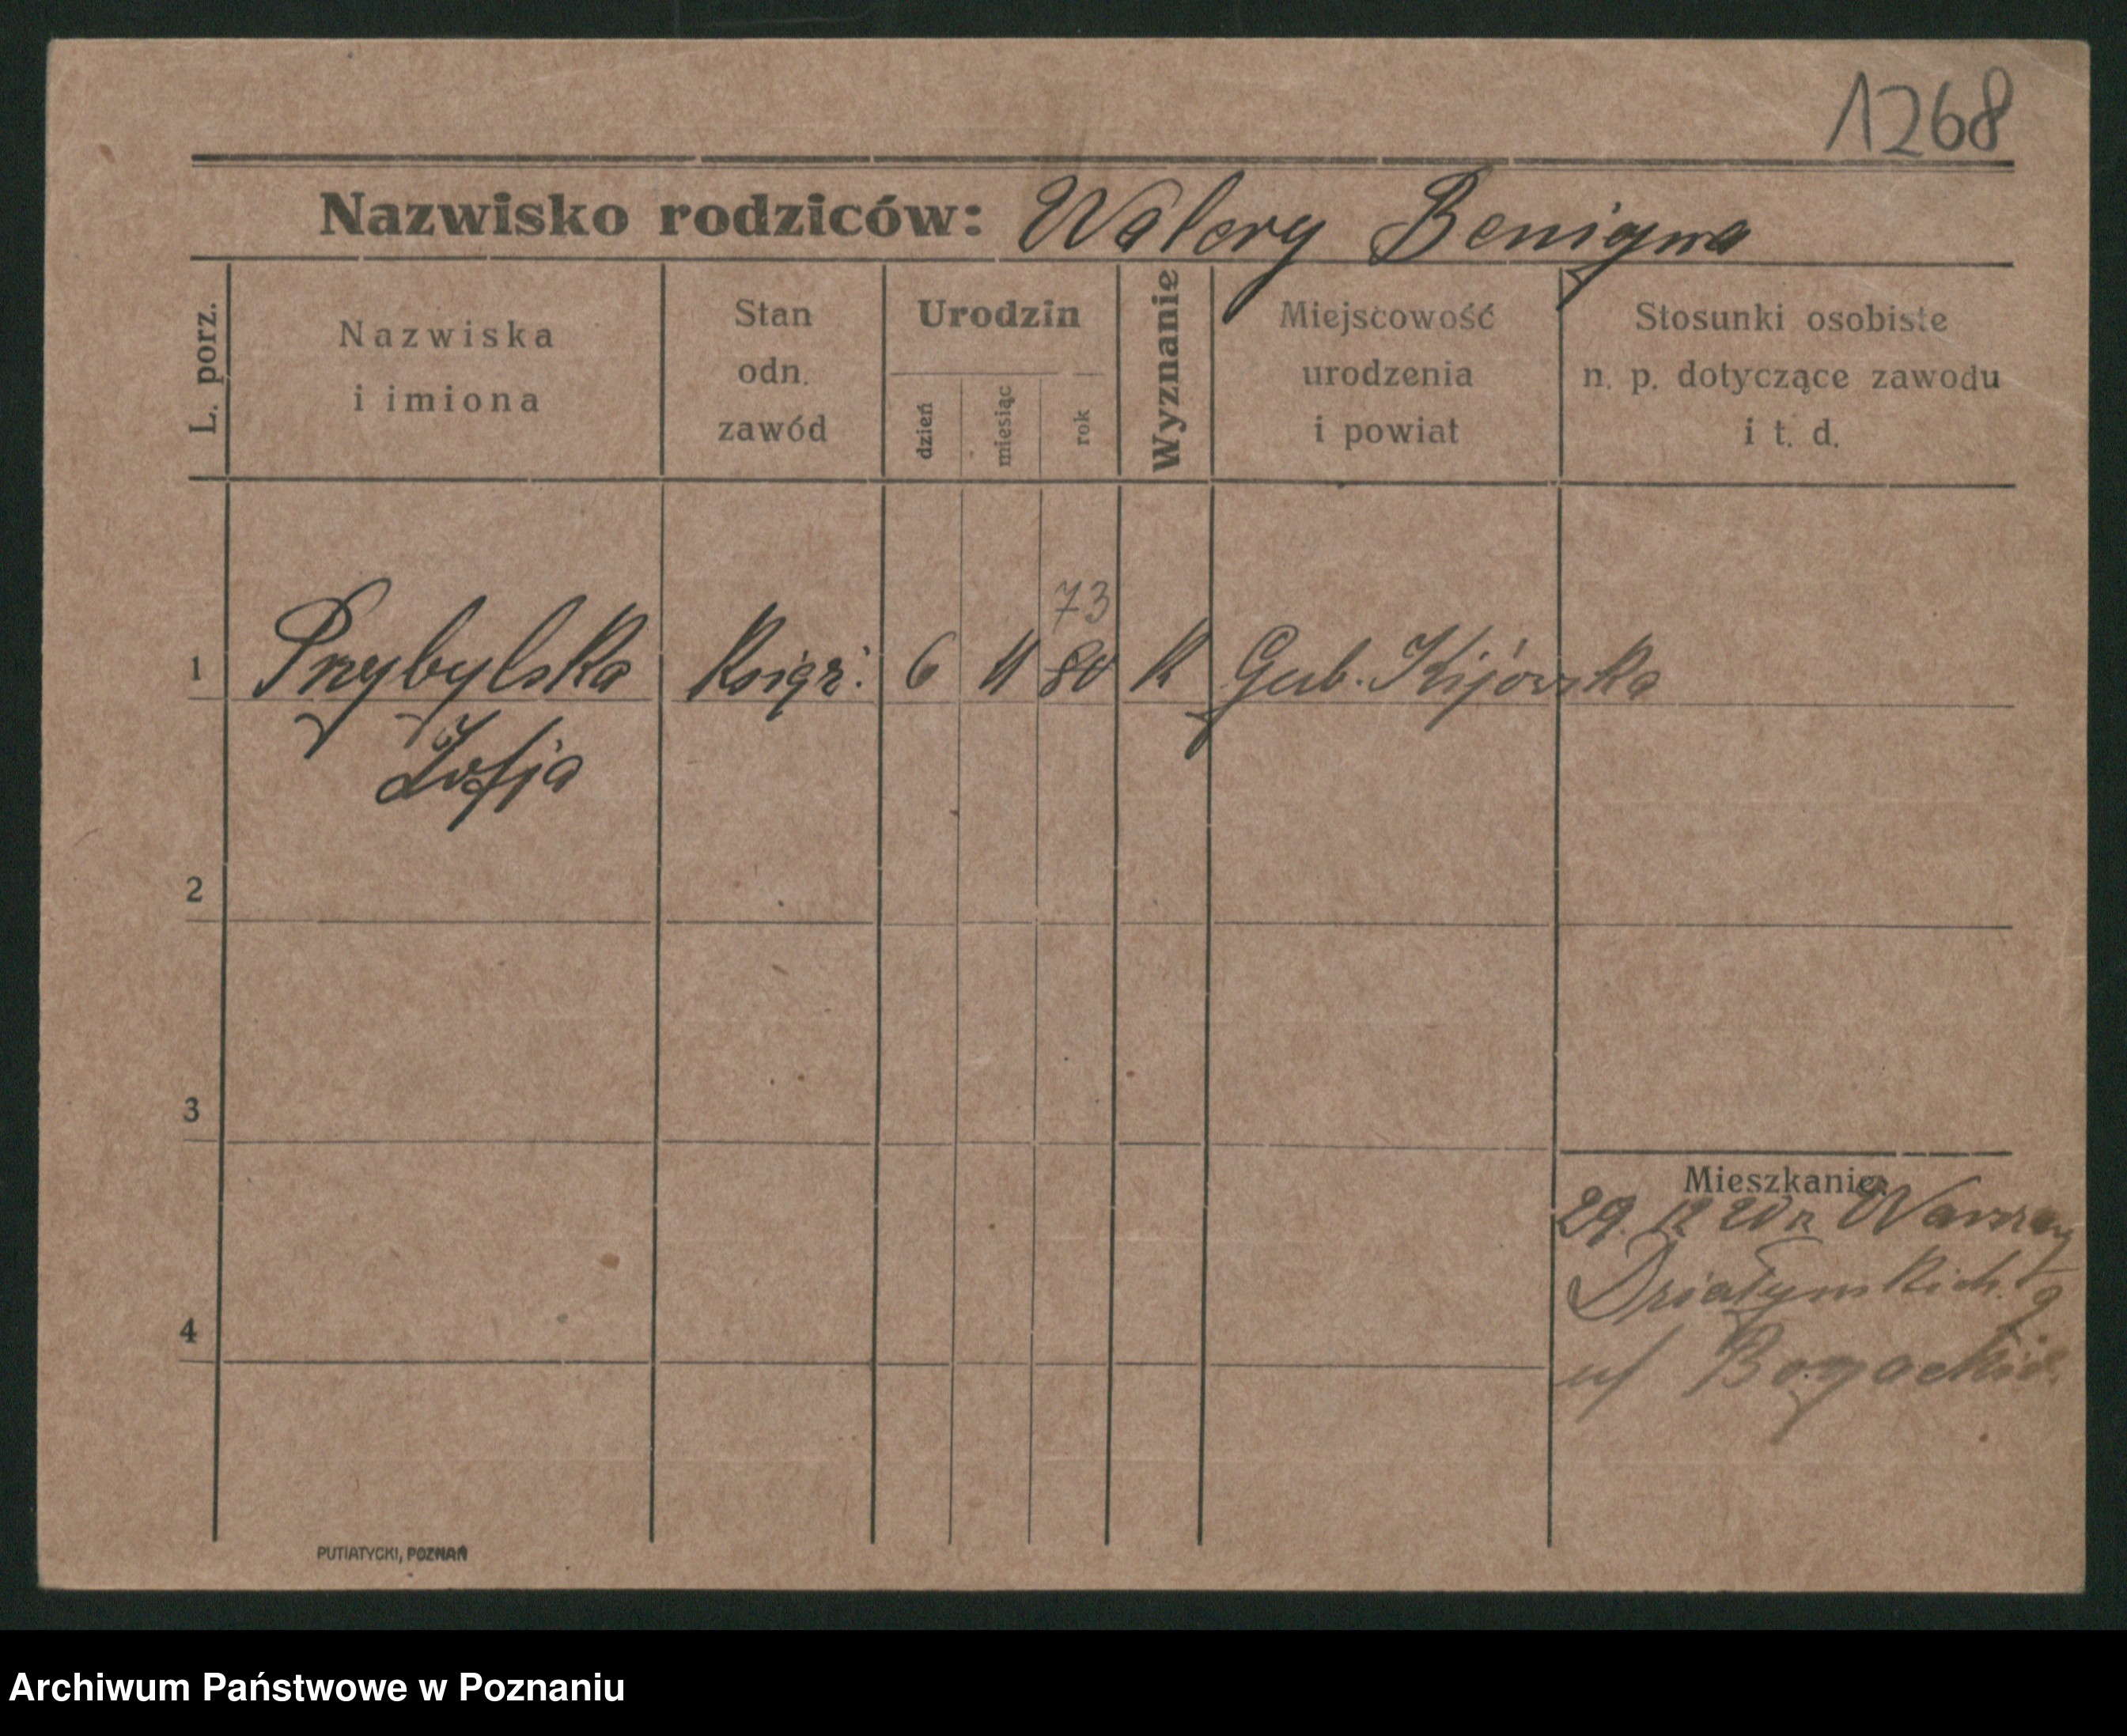 1268
Nazwisko rodziców: Walery Benigna
L. porz.
Nazwiska
i imiona
Stan
odn.
zawód
Urodzin
dzień
miesiąc
rok
Wyznanie
Miejscowość
urodzenia
i powiat
Stosunki osobiste
n. p. dotyczące zawodu
i t. d.
73
1 Przybylska Księż: 6 11 80 k Gub. Kijowska
Zofja
2
3
Mieszkanie:
29. 12 20 z Warszawy
Działyńskich 9
u/ Bogackich
4
PUTIATYCKI, POZNAŃ
Archiwum Państwowe w Poznaniu